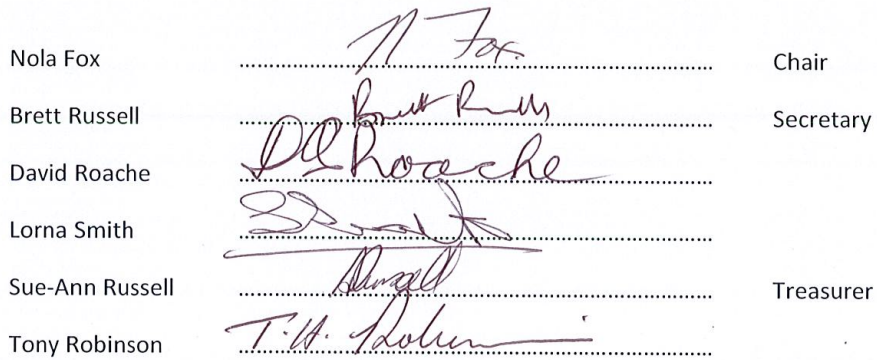 Nola Fox N Fox. Chair
Brett Russell Brett Russell Secretary
David Roache DG Roache
Lorna Smith
Sue-Ann Russell Treasurer
Tony Robinson T.H. Robinson